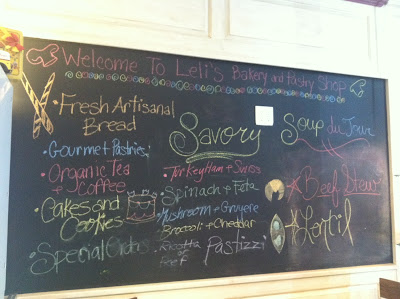 Welcome To Leli's Bakery and Pastry Shop
• Fresh Artisanal
Bread
• Gourmet Pastries
• Organic Tea
+ Coffee
• Cakes and
Cookies
• Special Orders
Savory
• Turkey Ham + Swiss
• Spinach + Feta
• Mushroom + Gruyere
• Broccoli + Cheddar
• Ricotta or
Beef Pastizzi
Soup du Jour
Beef Stew
Lentil